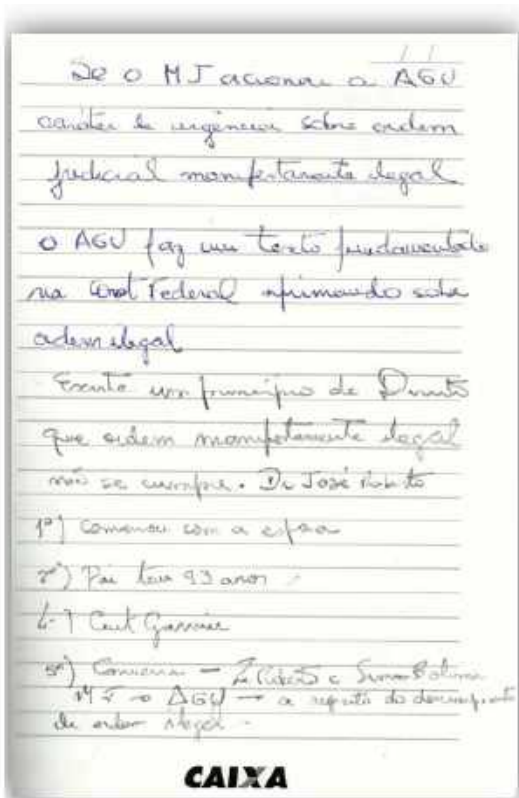 / /
Se o MJ acionar a AGU
caráter de urgência sobre ordem
judicial manifestamente ilegal
o AGU faz um texto fundamentado
na Const Federal afirmando sobre
ordem ilegal
Existe um princípio de Direito
que ordem manifestamente ilegal
não se cumpre. Dr José Roberto
1º) Comenou com a
2º) Pai tem 93 anos
4-)
5º) — Zé Roberto e
MJ → AGU → a respeito do
de ordem ilegal.
CAIXA